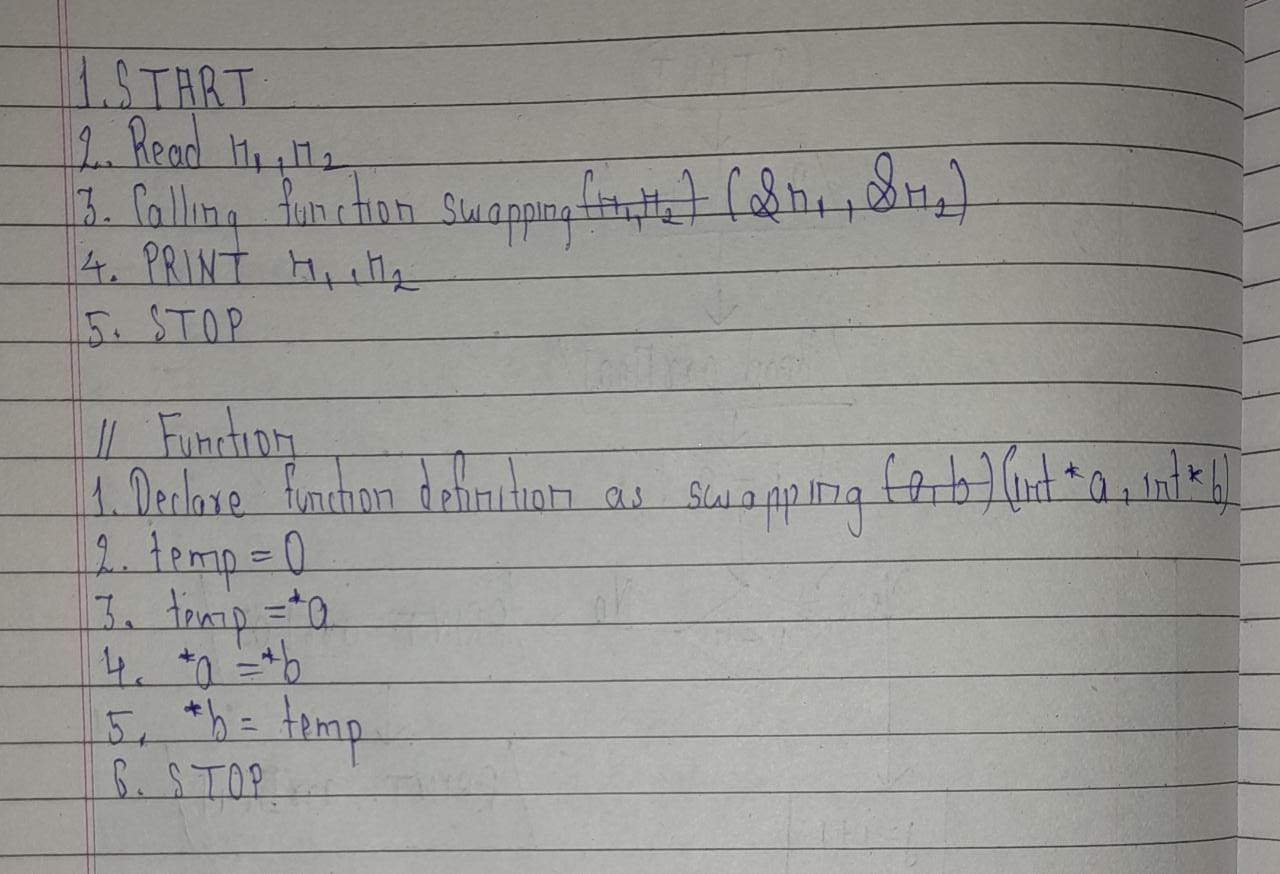 1. START
2. Read n₁, n₂
3. Calling function swapping (n₁, n₂) (&n₁, &n₂)
4. PRINT n₁, n₂
5. STOP
// Function
1. Declare function definition as swapping (a, b) (int *a, int *b)
2. temp = 0
3. temp = *a
4. *a = *b
5. *b = temp
6. STOP.